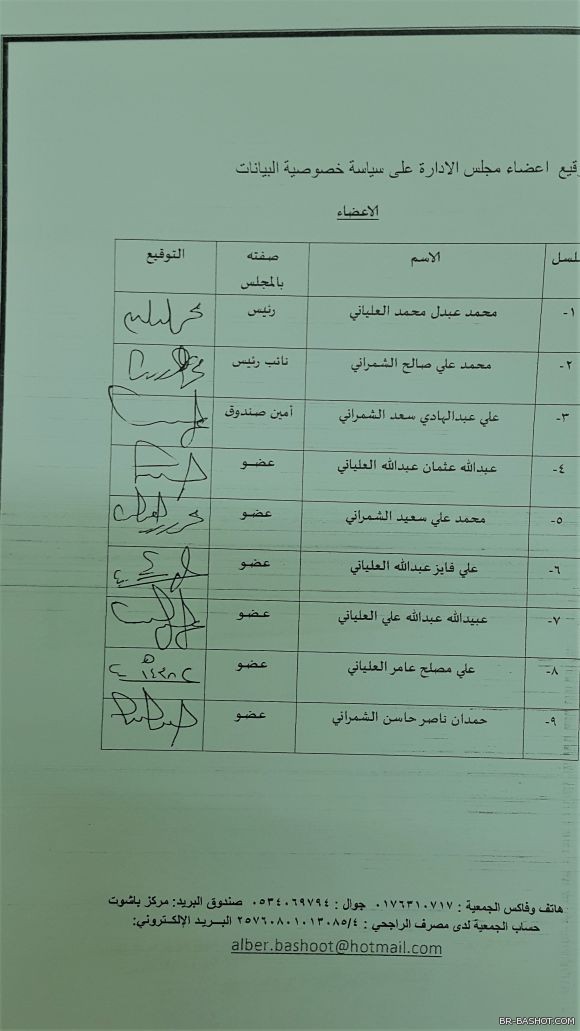 قيع اعضاء مجلس الادارة على سياسة خصوصية البيانات
الاعضاء
لسل الاسم صفته بالمجلس التوقيع
١- محمد عبدل محمد العلياني رئيس
٢- محمد علي صالح الشمراني نائب رئيس
٣- علي عبدالهادي سعد الشمراني أمين صندوق
٤- عبدالله عثمان عبدالله العلياني عضو
٥- محمد علي سعيد الشمراني عضو
٦- علي فايز عبدالله العلياني عضو
٧- عبيدالله عبدالله علي العلياني عضو
٨- علي مصلح عامر العلياني عضو
٩- حمدان ناصر حاسن الشمراني عضو
هاتف وفاكس الجمعية : ٠١٧٦٣١٠٧١٧ جوال : ٠٥٣٤٠٦٩٧٩٤ صندوق البريد: مركز باشوت
حساب الجمعية لدى مصرف الراجحي : ٢٥٧٦٠٨٠١٠١٣٠٨٥/٤ البـــريـد الإلكتروني:
alber.bashoot@hotmail.com
BR-BASHOT.COM